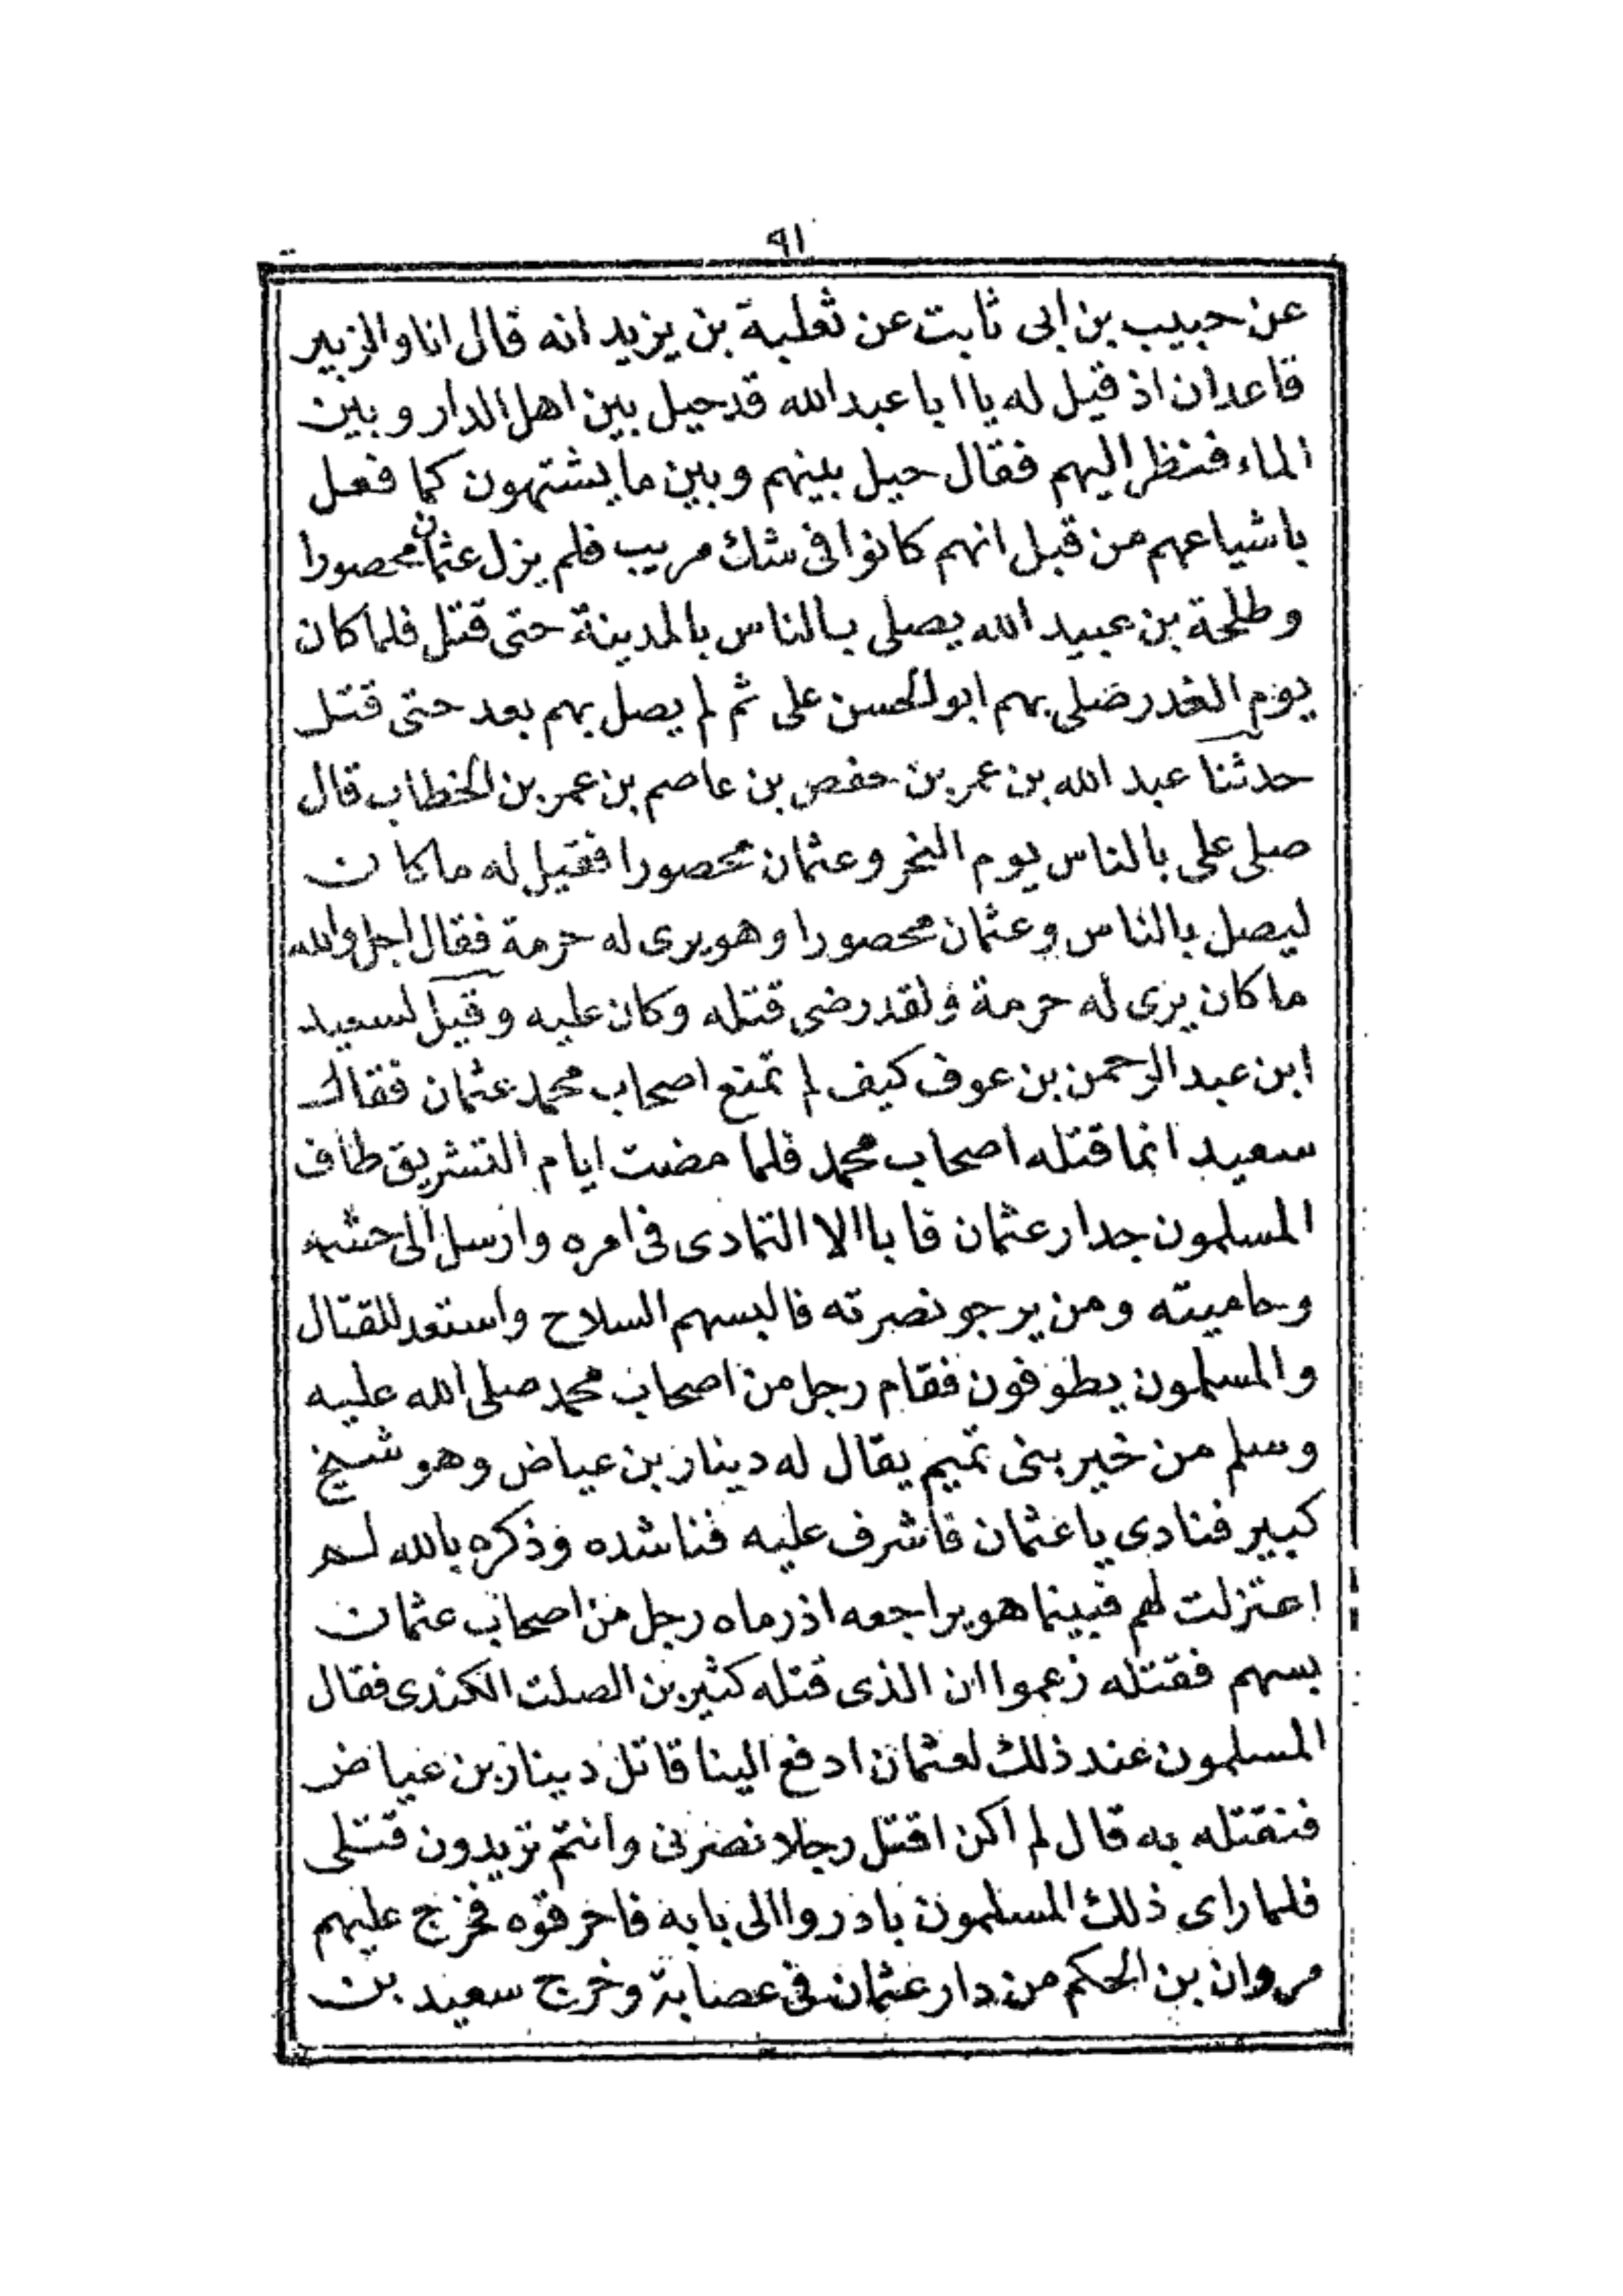 ٩١
عن حبيب بن ابى ثابت عن ثعلبة بن يزيد انه قال انا والزبير
قاعدان اذ قيل له يا ابا عبد الله قد حيل بين اهل الدار و بين
الماء فنظر اليهم فقال حيل بينهم وبين ما يشتهون كما فعل
باشياعهم من قبل انهم كانوا فى شك مريب فلم يزل عثمان محصورا
وطلحة بن عبيد الله يصلى بالناس بالمدينة حتى قتل فلما كان
يوم الغدر ضلى بهم ابو الحسن على ثم لم يصل بهم بعد حتى قتل
حدثنا عبد الله بن عمر بن حفص بن عاصم بن عمر بن الخطاب قال
صلى على بالناس يوم النحر وعثمان محصورا فقيل له ما كان
ليصل بالناس وعثمان محصورا وهو يرى له حرمة فقال اجل والله
ما كان يرى له حرمة ولقد رضى قتله وكان عليه وقيل لسعيد
ابن عبد الرحمن بن عوف كيف لم تمنع اصحاب محمد عثمان فقال
سعيد انما قتله اصحاب محمد فلما مضت ايام التشريق طاف
المسلمون جدار عثمان فابا الا التمادى فى امره وارسل الى حشمه
وحاميته ومن يرجو نصرته فالبسهم السلاح واستعد للقتال
والمسلمون يطوفون فقام رجل من اصحاب محمد صلى الله عليه
وسلم من خير بنى تميم يقال له دينار بن عياض وهو شيخ
كبير فنادى يا عثمان فاشرف عليه فناشده وذكره بالله لم
اعتزلت لهم فبينما هو يراجعه اذ رماه رجل من اصحاب عثمان
بسهم فقتله زعموا ان الذى قتله كثير بن الصلت الكندى فقال
المسلمون عند ذلك لعثمان ادفع الينا قاتل دينار بن عياض
فنقتله به قال لم اكن اقتل رجلا نصرنى وانتم تريدون قتلى
فلما راى ذلك المسلمون بادروا الى بابه فاحرقوه فخرج عليهم
مروان بن الحكم من دار عثمان فى عصابة وخرج سعيد بن